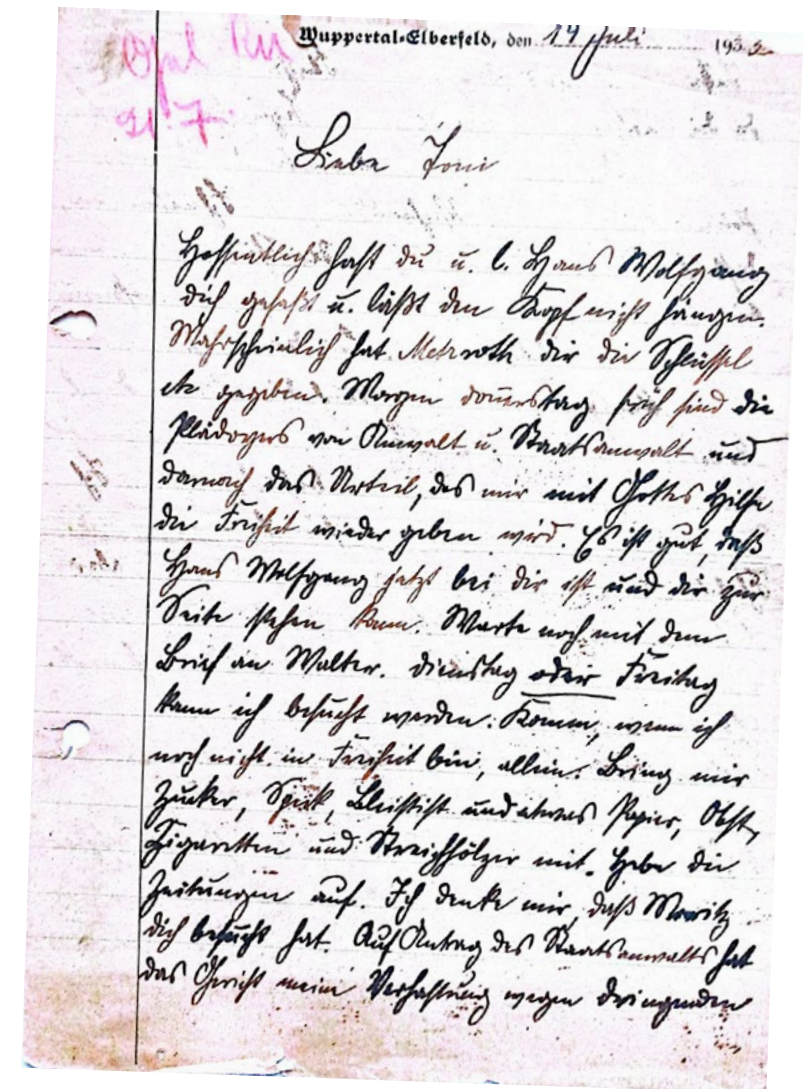 Wuppertal-Elberfeld, den 14 Juli 193
21. 7.
Liebe Toni
Hoffentlich hast du u. l. Hans Wolfgang
dich gefaßt u. läßt den Kopf nicht hängen.
Wahrscheinlich hat dir die Schlüssel
etc gegeben. Morgen donnerstag früh sind die
Plädoyers von Anwalt u. Staatsanwalt und
darnach das Urteil, das mir mit Gottes Hilfe
die Freiheit wieder geben wird. Es ist gut, daß
Hans Wolfgang jetzt bei dir ist und dir zur
Seite stehen kann. Warte noch mit dem
Brief an Walter. Dienstag oder Freitag
kann ich besucht werden. Komm, wenn ich
noch nicht in Freiheit bin, allein. Bring mir
Zucker, Speck, Bleistift und etwas Papier, Obst,
Zigaretten und Streichhölzer mit. Hebe die
Zeitungen auf. Ich denke mir, daß Moritz
dich besucht hat. Auf Antrag des Staatsanwalts hat
das Gericht meine Verhaftung wegen dringenden